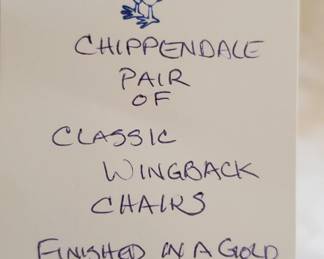 CHIPPENDALE
PAIR
OF
CLASSIC
WINGBACK
CHAIRS
FINISHED IN A GOLD